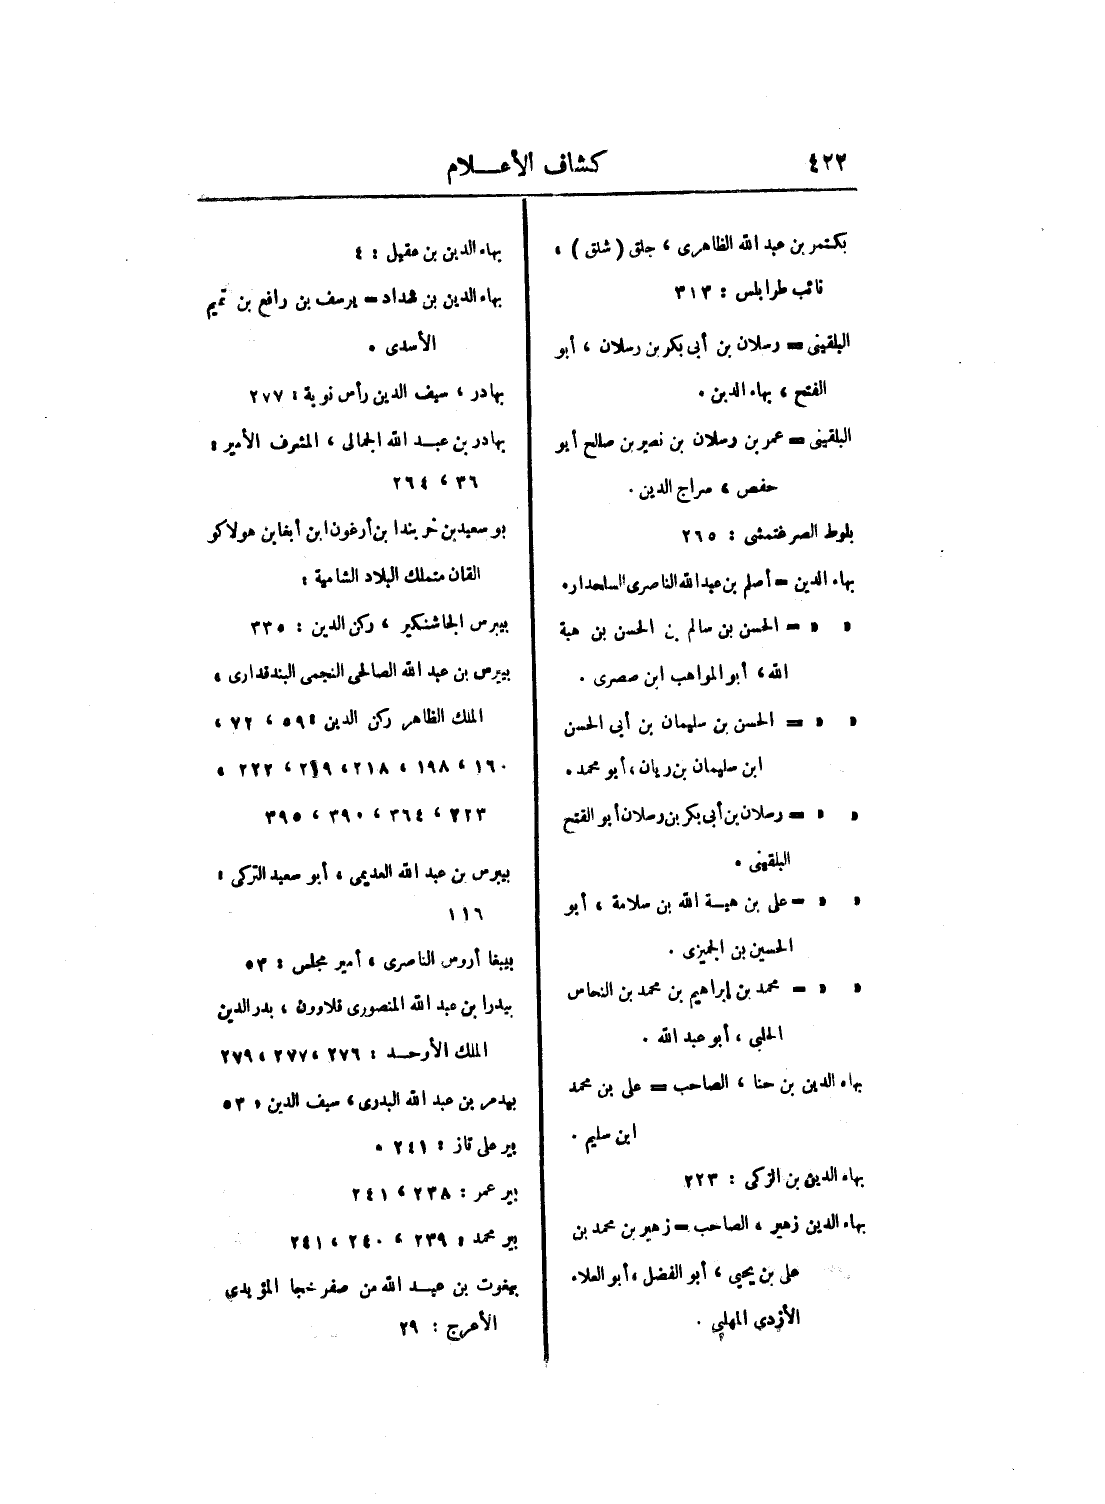 ٤٢٢
كشاف الأعـــلام
بكتمر بن عبد الله الظاهرى ، جلق ( شلق ) ،
نائب طرابلس : ٣١٣
البلقينى = رسلان بن أبى بكر بن رسلان ، أبو
الفتح ، بهاء الدين .
البلقينى = عمر بن رسلان بن نصير بن صالح أبو
حفص ، سراج الدين .
بلوط الصرغتمشى : ٢٦٥
بهاء الدين = أصلم بن عبد الله الناصرى السلحدار .
» » = الحسن بن سالم بن الحسن بن هبة
الله ، أبو المواهب ابن صصرى .
» » = الحسن بن سليمان بن أبى الحسن
ابن سليمان بن ريان ، أبو محمد .
» » = رسلان بن أبى بكر بن رسلان أبو الفتح
البلقينى .
» » = على بن هبـة الله بن سلامة ، أبو
الحسين بن الجميزى .
» » = محمد بن إبراهيم بن محمد بن النحاس
الحلبي ، أبو عبد الله .
بهاء الدين بن حنا ، الصاحب = على بن محمد
ابن سليم .
بهاء الدين بن الزكى : ٢٢٣
بهاء الدين زهير ، الصاحب = زهير بن محمد بن
على بن يحيى ، أبو الفضل ، أبو العلاء
الأزدي المهلبي .
بهاء الدين بن عقيل : ٤
بهاء الدين بن شداد = يوسف بن رافع بن تميم
الأسدى .
بهادر ، سيف الدين رأس نوبة : ٢٧٧
بهادر بن عبـد الله الجمالى ، المشرف الأمير :
٣٦ ، ٢٦٤
بو سعيد بن خربندا بن أرغون ابن أبغا بن هولاكو
القان متملك البلاد الشامية :
بيبرس الجاشنكير ، ركن الدين : ٣٣٥
بيبرس بن عبد الله الصالحى النجمى البندقدارى ،
الملك الظاهر ركن الدين : ٥٩ ، ٧٢ ،
١٦٠ ، ١٩٨ ، ٢١٨ ، ٢١٩ ، ٢٢٢ ،
٢٢٣ ، ٣٦٤ ، ٣٩٠ ، ٣٩٥
بيبرس بن عبد الله العديمى ، أبو سعيد التركى :
١١٦
بيبغا أروس الناصرى ، أمير مجلس : ٥٣
بيدرا بن عبد الله المنصورى قلاوون ، بدر الدين
الملك الأوحـد : ٢٧٦ ، ٢٧٧ ، ٢٧٩
بيدمر بن عبد الله البدرى ، سيف الدين : ٥٣
بير على تاز : ٢٤١ .
بير عمر : ٢٣٨ ، ٢٤١
بير محمد : ٢٣٩ ، ٢٤٠ ، ٢٤١
بيغوت بن عبـد الله من صفر خجا المؤيدي
الأعرج : ٢٩